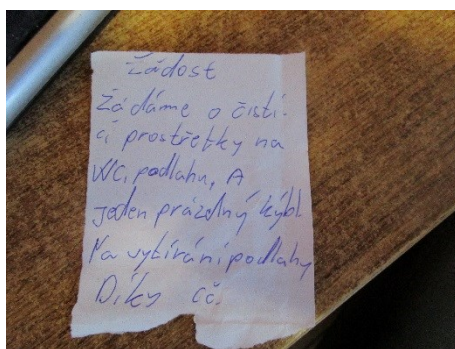 Žádost
Žádáme o čistí-
cí prostřetky na
WC, podlahu, A
jeden prázdný kýbl
Na vytírání podlahy
Díky čč.